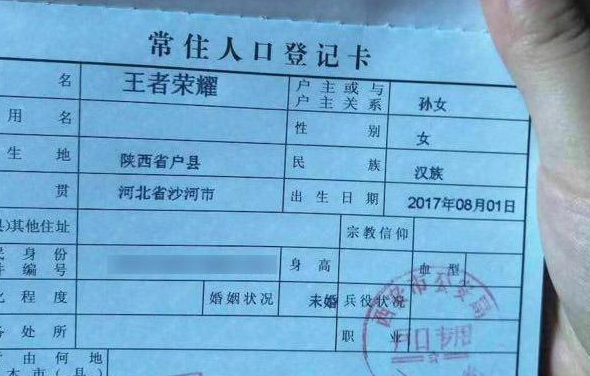 常住人口登记卡
名 王者荣耀 户主或与户主关系 孙女
用名 性别 女
生地 陕西省户县 民族 汉族
贯 河北省沙河市 出生日期 2017年08月01日
)其他住址 宗教信仰
身份 编号 身高 血型
程度 婚姻状况 未婚 兵役状况
处所 职业
由何地
本市(县)
西安市公安局
户口专用